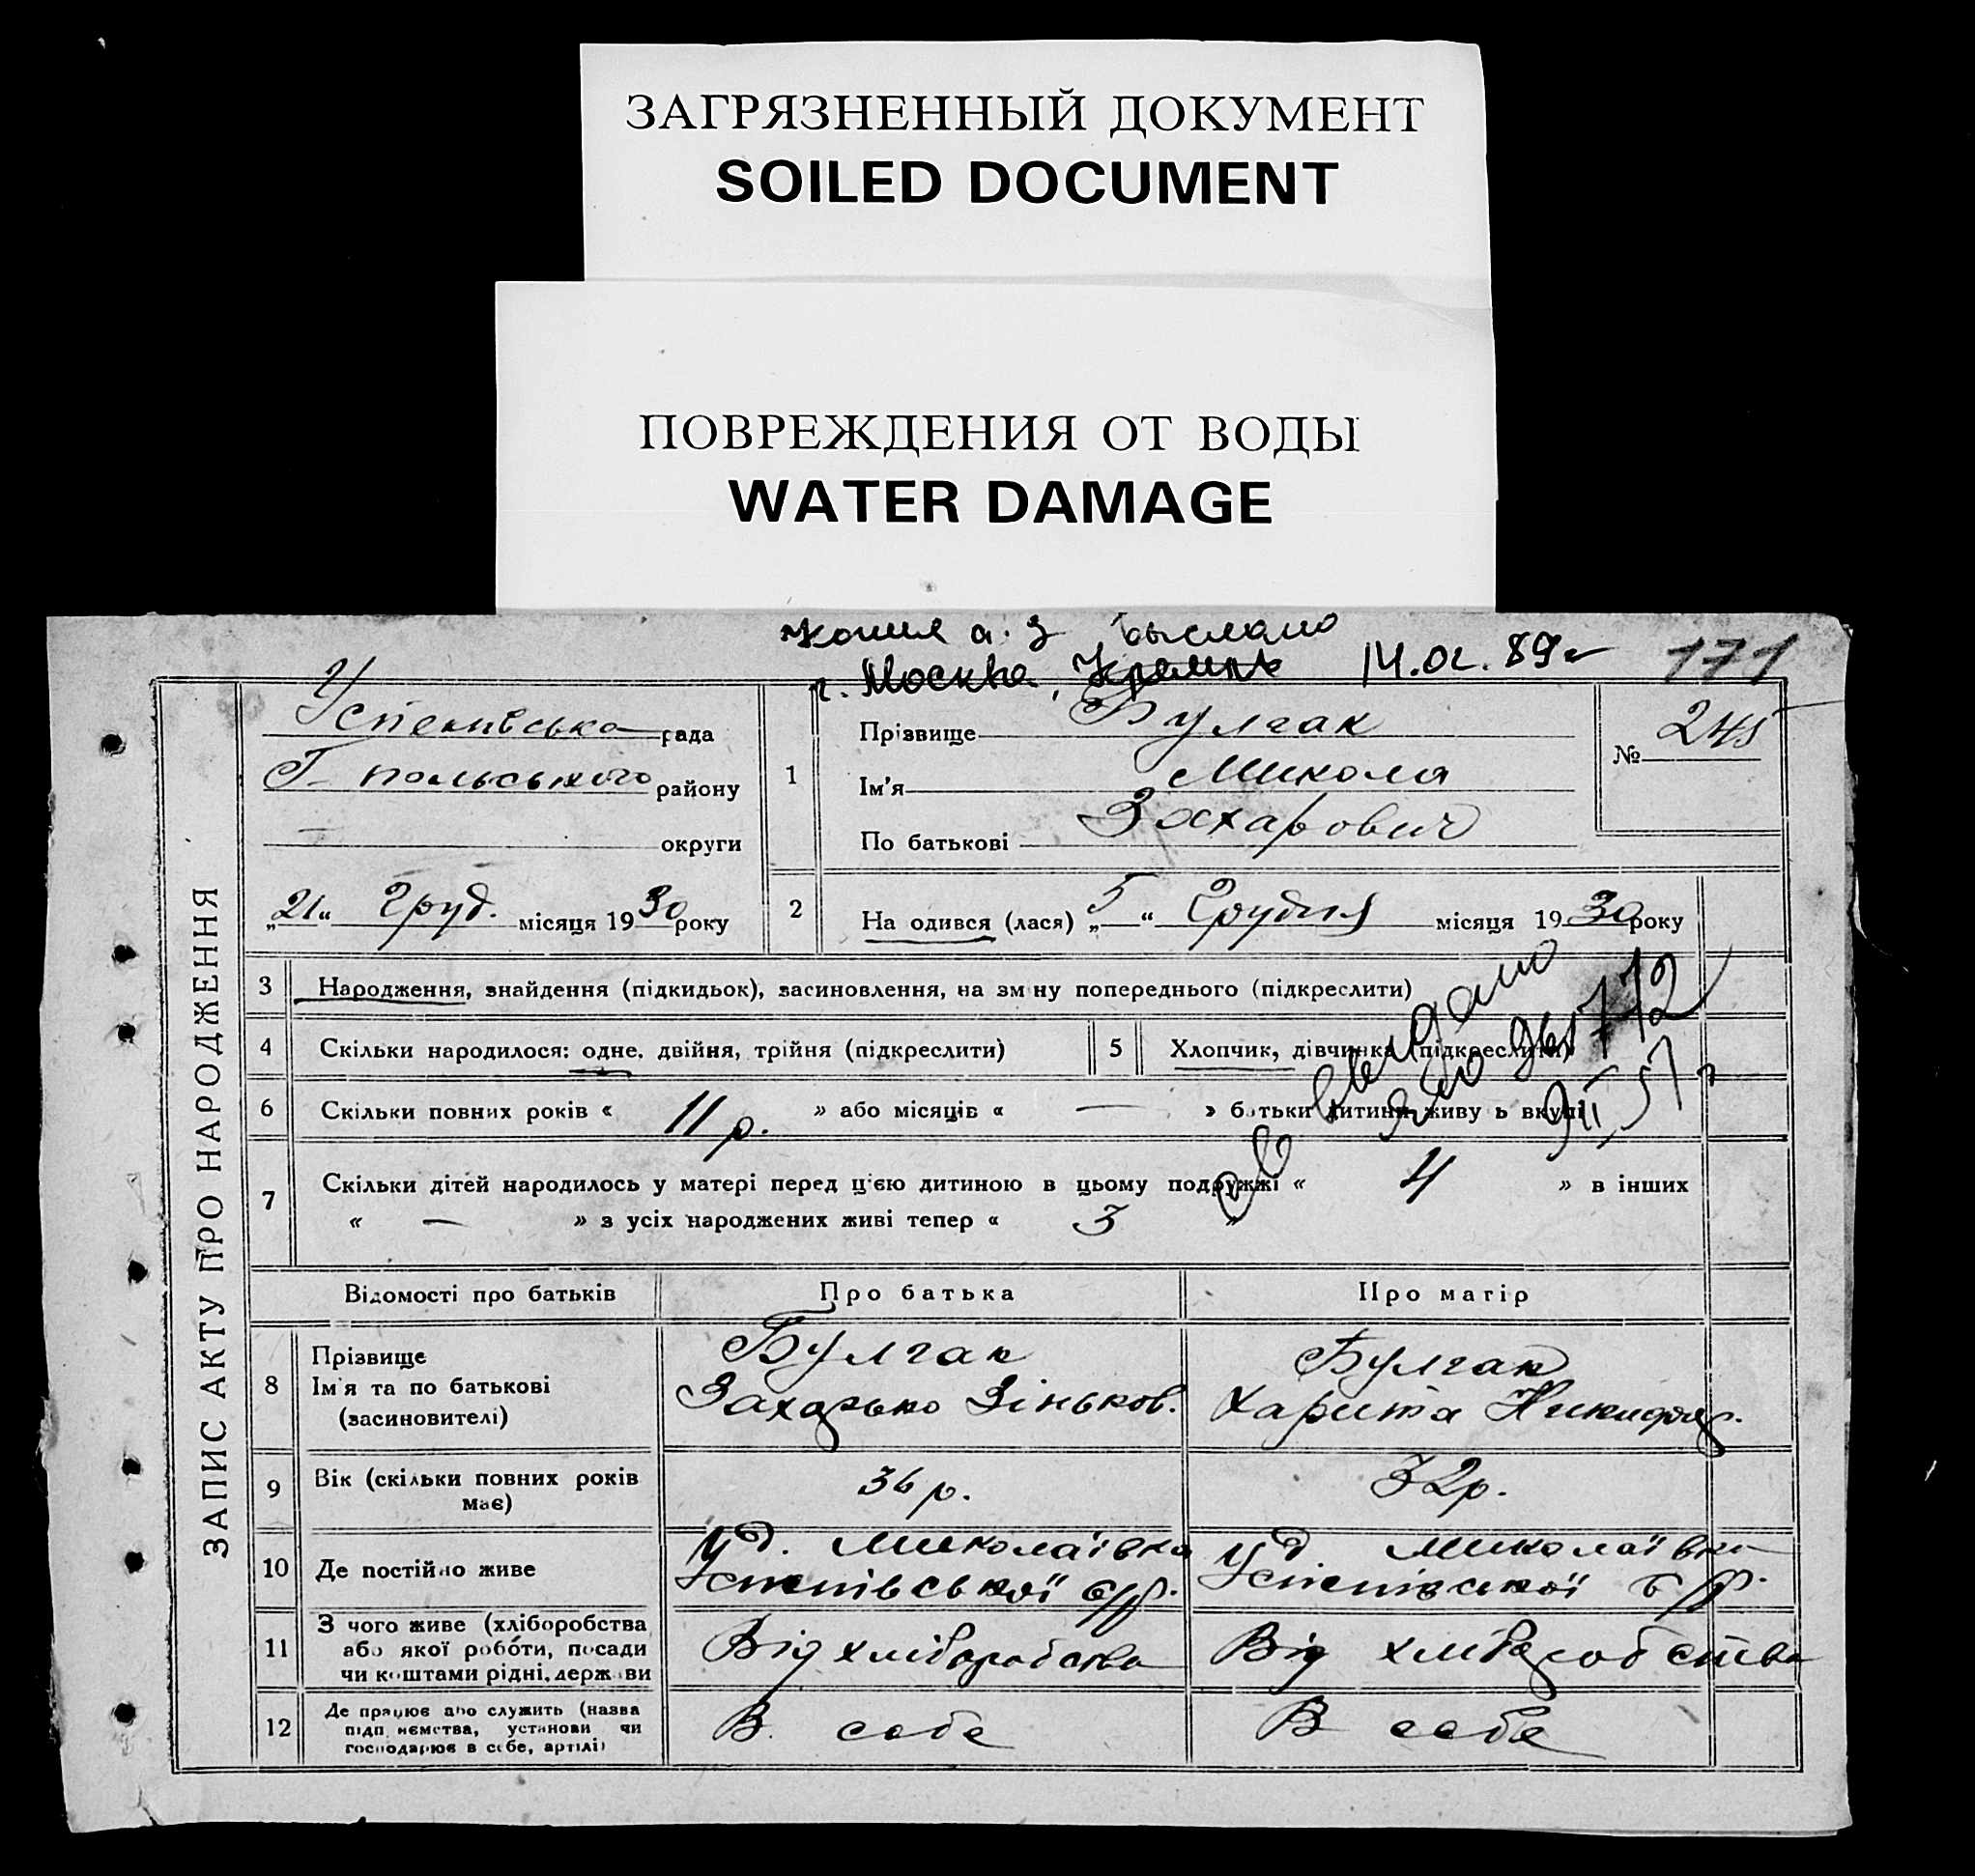 ЗАГРЯЗНЕННЫЙ ДОКУМЕНТ
SOILED DOCUMENT
ПОВРЕЖДЕНИЯ ОТ ВОДЫ
WATER DAMAGE
копия а.з выслано
г. Москва, 14.02.89г
171
ЗАПИС АКТУ ПРО НАРОДЖЕННЯ
Успенівська рада
Г-польського району
— округи
„21“ Груд. місяця 1930 року
1
Прізвище Булгак
Ім'я Микола
По батькові Захарович
№ 245
2
На одився (лася) „5“ Грудня місяця 1930 року
3 Народження, знайдення (підкидьок), засиновлення, на зм ну попереднього (підкреслити)
4 Скільки народилося: одне, двійня, трійня (підкреслити)
5 Хлопчик, дівчинка (підкреслити)
6 Скільки повних років « 11 р. » або місяців « — » батьки дитини живу ь вкупі
7 Скільки дітей народилось у матері перед цією дитиною в цьому подружжі « 4 » в інших
« — » з усіх народжених живі тепер « 3 »
Відомості про батьків Про батька Про матір
8 Прізвище
Ім'я та по батькові
(засиновителі)
Булгак
Захарько Зіньков.
Булгак
Харита Никифор.
9 Вік (скільки повних років має)
36 р.
32 р.
10 Де постійно живе
Миколаївка
Успенівської с/р.
Миколаївка
Успенівської с/р.
11 З чого живе (хліборобства
або якої роботи, посади
чи коштами рідні, держави
Від хліборобства
Від хліборобства
12 Де працює або служить (назва
підп иємства, установи чи
господарює в себе, артілі)
В себе
В себе